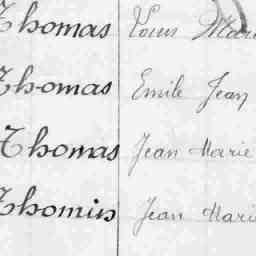 Thomas Louis Marie
Thomas Emile Jean
Thomas Jean Marie
Thomin Jean Marie